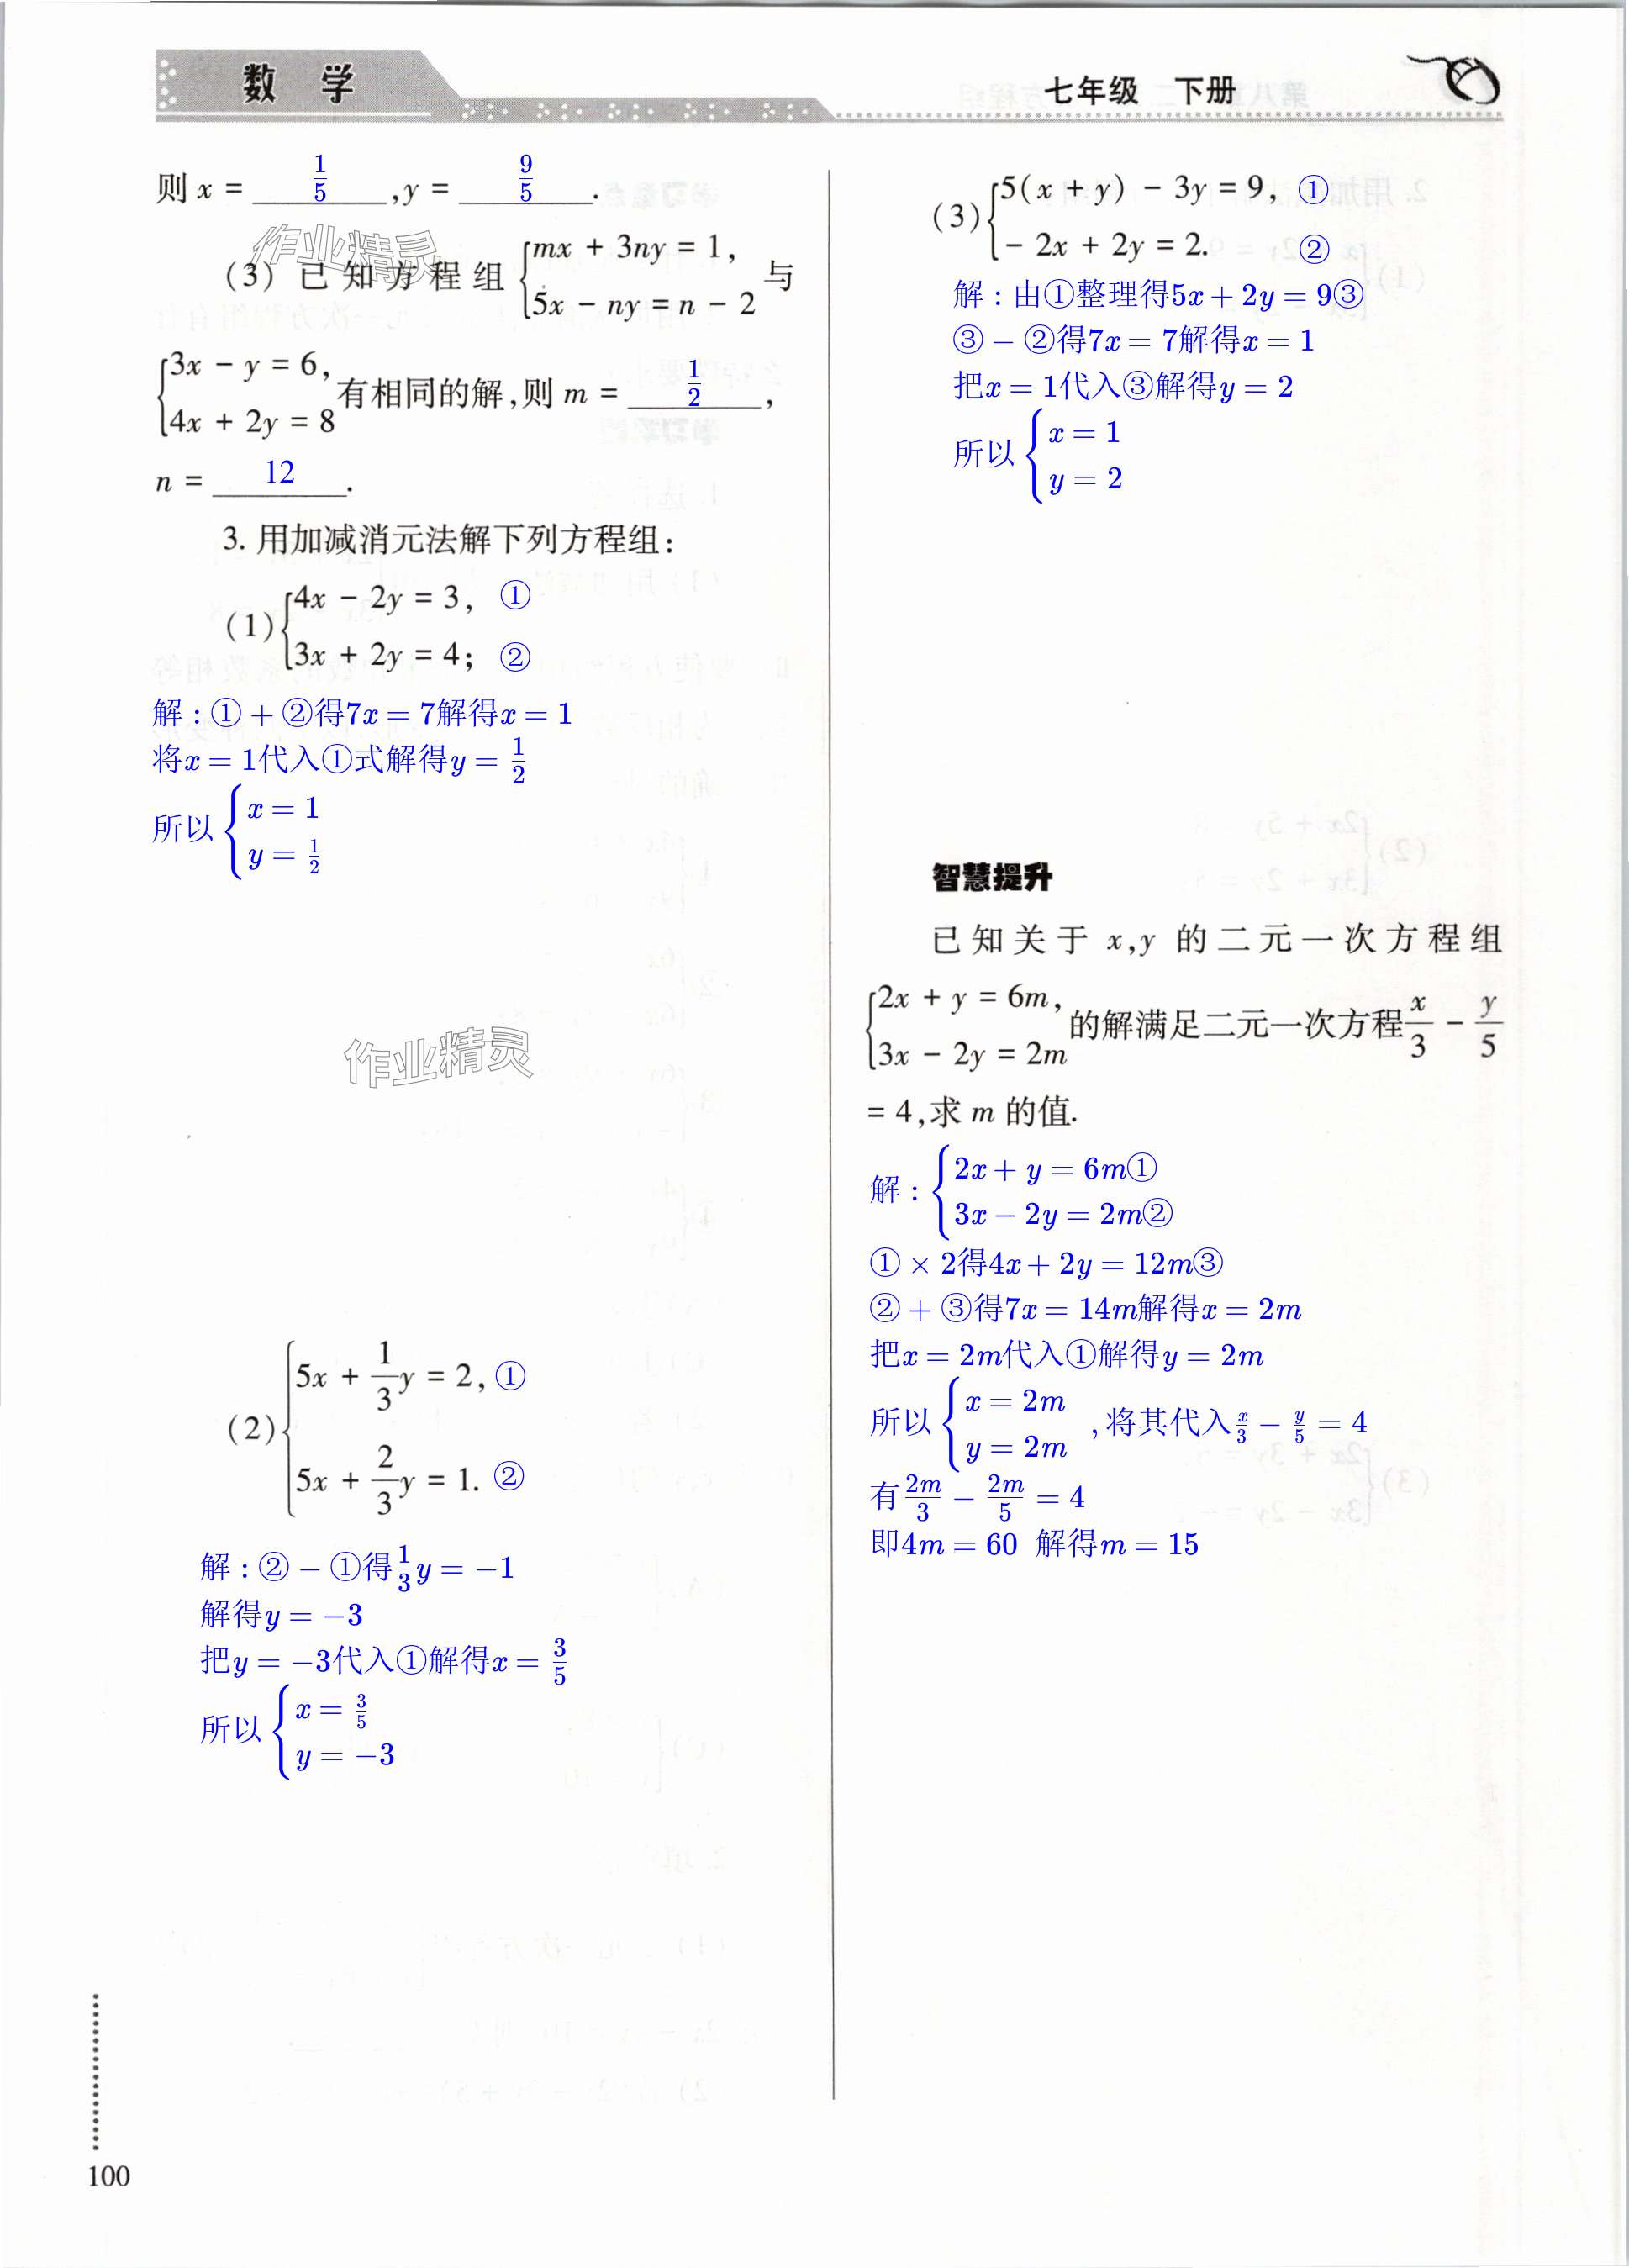 数 学
七年级 下册
则 x = 1/5 ,y = 9/5 .
(3) 已知方程组 { mx + 3ny = 1, 5x - ny = n - 2 与
{ 3x - y = 6, 4x + 2y = 8 有相同的解,则 m = 1/2 ,
n = 12 .
3. 用加减消元法解下列方程组:
(1) { 4x - 2y = 3, ①
3x + 2y = 4; ②
解:①+②得7x = 7解得x = 1
将x = 1代入①式解得y = 1/2
所以 { x = 1
y = 1/2
作业精灵
作业精灵
(2) { 5x + 1/3 y = 2, ①
5x + 2/3 y = 1. ②
解:②-①得1/3 y = -1
解得y = -3
把y = -3代入①解得x = 3/5
所以 { x = 3/5
y = -3
100
(3) { 5(x + y) - 3y = 9, ①
- 2x + 2y = 2. ②
解:由①整理得5x + 2y = 9③
③-②得7x = 7解得x = 1
把x = 1代入③解得y = 2
所以 { x = 1
y = 2
智慧提升
已知关于 x,y 的二元一次方程组
{ 2x + y = 6m, 3x - 2y = 2m 的解满足二元一次方程 x/3 - y/5
= 4,求 m 的值.
解: { 2x + y = 6m①
3x - 2y = 2m②
①×2得4x + 2y = 12m③
②+③得7x = 14m解得x = 2m
把x = 2m代入①解得y = 2m
所以 { x = 2m y = 2m ,将其代入 x/3 - y/5 = 4
有 2m/3 - 2m/5 = 4
即4m = 60 解得m = 15